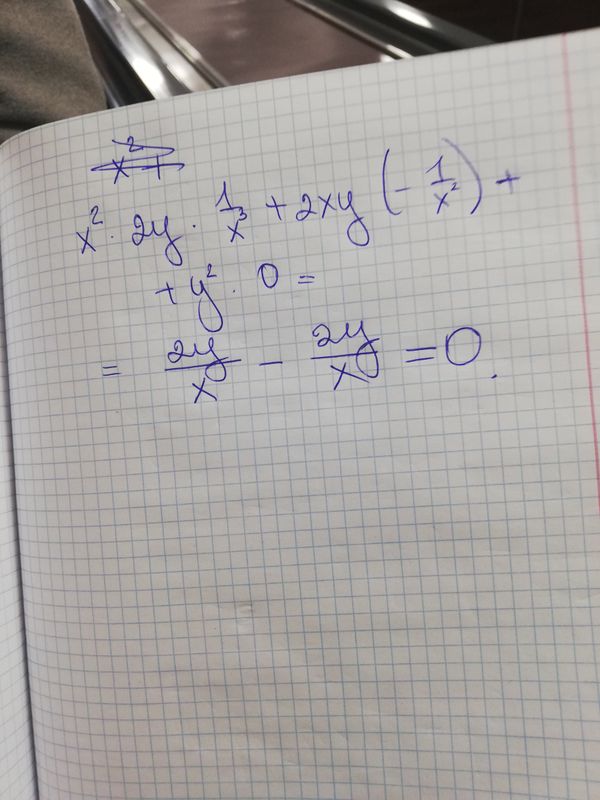 x² +
x² · 2y · 1/x³ + 2xy (- 1/x²) +
+ y² · 0 =
= 2y/x - 2y/x = 0.